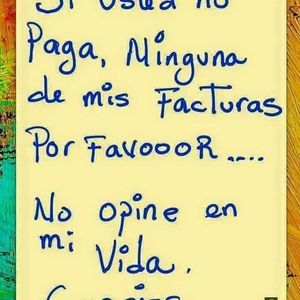 Si usted no
Paga, Ninguna
de mis Facturas
Por Favooor.....
No opine en
mi Vida.
Gracias